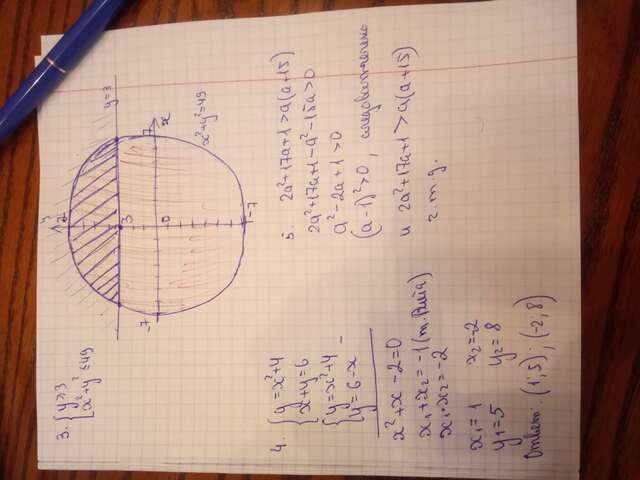 3. { y ≥ 3
x² + y² ≤ 49
y
7
y = 3
3
-7
7
0
x
x² + y² = 49
-7
4. { y = x² + 4
x + y = 6
{ y = x² + 4
y = 6 - x
x² + x - 2 = 0
x₁ + x₂ = -1 (т. Виета)
x₁ · x₂ = -2
x₁ = 1 x₂ = -2
y₁ = 5 y₂ = 8
Ответ: (1; 5); (-2, 8)
5. 2a² + 17a + 1 > a(a + 15)
2a² + 17a + 1 - a² - 15a > 0
a² - 2a + 1 > 0
(a - 1)² > 0, следовательно
и 2a² + 17a + 1 > a(a + 15)
ч. т. д.